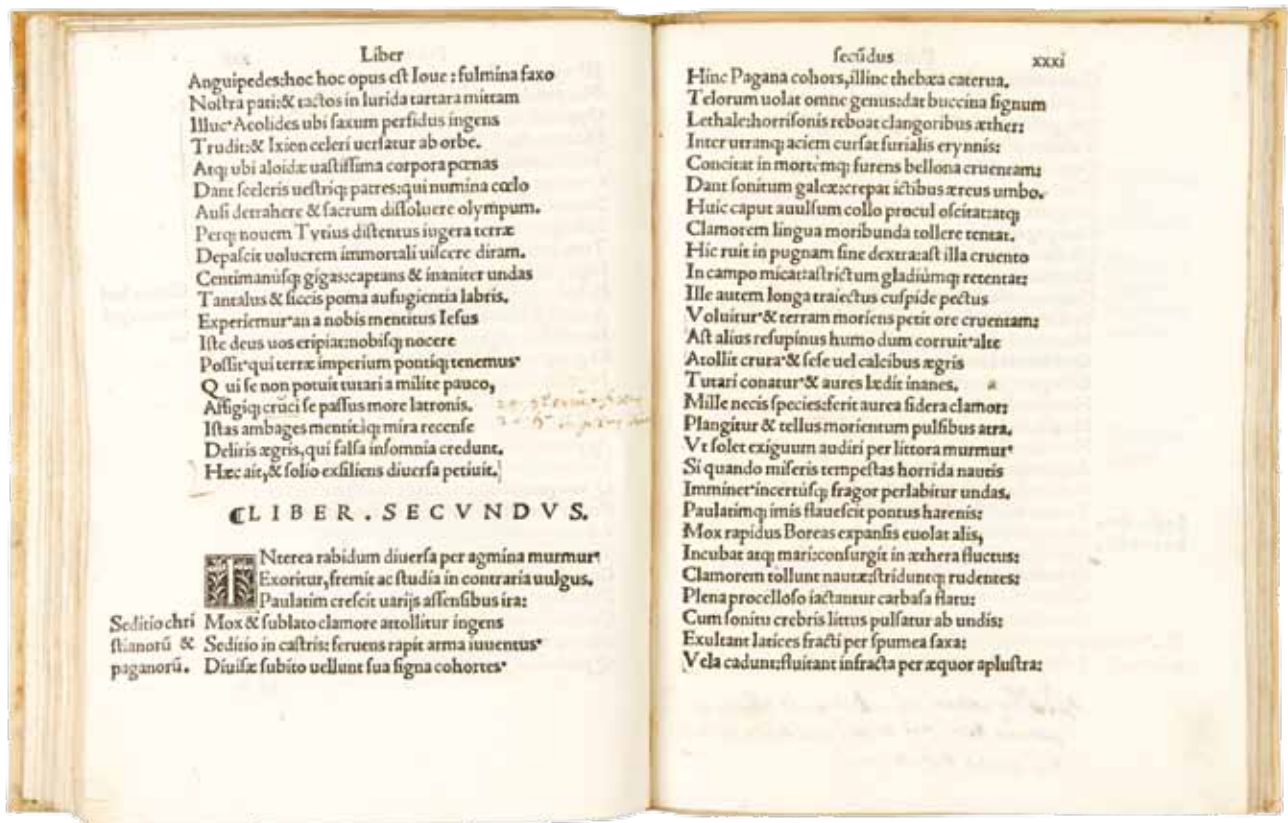 Liber
Anguipedes:hoc hoc opus est Ioue : fulmina saxo
Nostra pati:& tactos in lurida tartara mittam
Illuc·Aeolides ubi saxum perfidus ingens
Trudit:& Ixion celeri uersatur ab orbe.
Atq; ubi aloidæ uastissima corpora pœnas
Dant sceleris uestriq; patres:qui numina cœlo
Ausi detrahere & sacrum dissoluere olympum.
Perq; nouem Tytius distentus iugera terræ
Depascit uolucrem immortali uiscere diram.
Centimanúsq; gigas:captans & inaniter undas
Tantalus & siccis poma aufugientia labris.
Experiemur·an a nobis mentitus Iesus
Iste deus uos eripiat:nobisq; nocere
Possit·qui terræ imperium pontiq; tenemus·
Q ui se non potuit tutari a milite pauco,
Affigiq; crúci se passus more latronis.
Istas ambages mentitiq; mira recense
Deliris ægris, qui falsa insomnia credunt.
Hæc ait, & solio exsiliens diuersa petiuit.
⸿LIBER . SECVNDVS.
INterea rabidum diuersa per agmina murmur·
Exoritur, fremit ac studia in contraria uulgus.
Paulatim crescit uarijs assensibus ira:
Seditio chri Mox & sublato clamore attollitur ingens
stianorū & Seditio in castris: feruens rapit arma iuuentus·
paganorū. Diuisæ subito uellunt sua signa cohortes·
secūdus xxxi
Hinc Pagana cohors, illinc thebæa caterua.
Telorum uolat omne genus:dat buccina signum
Lethale:horrisonis reboat clangoribus æther:
Inter utranq; aciem cursat furialis erynnis:
Concitat in mortémq; furens bellona cruentam:
Dant sonitum galeæ:crepat ictibus æreus umbo.
Huic caput auulsum collo procul oscitat:atq;
Clamorem lingua moribunda tollere tentat.
Hic ruit in pugnam sine dextra:ast illa cruento
In campo micat:astrictum gladiúmq; retentat:
Ille autem longa traiectus cuspide pectus
Voluitur·& terram moriens petit ore cruentam:
Ast alius resupinus humo dum corruit·alte
Atollit crura·& sese uel calcibus ægris
Tutari conatur·& aures lædit inanes.
Mille necis species:ferit aurea sidera clamor:
Plangitur & tellus morientum pulsibus atra.
Vt solet exiguum audiri per littora murmur·
Si quando miseris tempestas horrida nautis
Imminet·incertúsq; fragor perlabitur undas.
Paulatimq; imis flauescit pontus harenis:
Mox rapidus Boreas expansis euolat alis,
Incubat atq; mari:consurgit in æthera fluctus:
Clamorem tollunt nautæ:striduntq; rudentes:
Plena procelloso iactantur carbasa flatu:
Cum sonitu crebris littus pulsatur ab undis:
Exultant latices fracti per spumea saxa:
Vela cadunt:fluitant infracta per æquor aplustra: